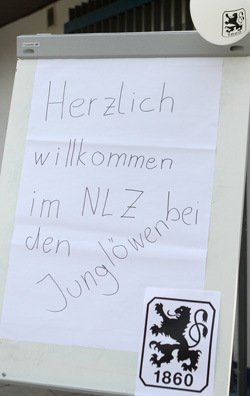 1860
Herzlich
willkommen
im NLZ bei
den
Junglöwen
1860